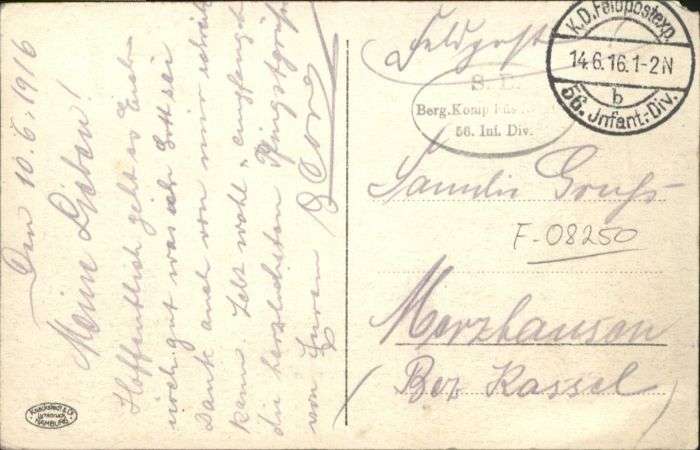 Den 10.6.1916
Meine Lieben!
Hoffentlich geht es Euch
noch gut was ich Gott sei
Dank auch von mir schreiben
kann. Lebt wohl, empfangt
die herzlichsten Pfingstgrüße
von Eurem Georg
Knackstedt & Co
HAMBURG
Feldpost
K.D.Feldpostexp.
14.6.16.1-2N
b
56. Infant.-Div.
S. B.
Berg.Komp
56. Inf. Div.
Familie
F-08250
Merzhausen
Bez Kassel